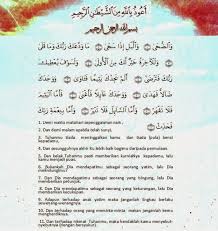 أَعُوذُ بِاللَّهِ مِنَ الشَّيْطَانِ الرَّجِيمِ
بِسْمِ اللَّهِ الرَّحْمَنِ الرَّحِيمِ
وَالضُّحَى وَاللَّيْلِ إِذَا سَجَى مَا وَدَّعَكَ رَبُّكَ وَمَا
قَلَى وَلَلْآخِرَةُ خَيْرٌ لَكَ مِنَ الْأُولَى وَلَسَوْفَ يُعْطِيكَ
رَبُّكَ فَتَرْضَى أَلَمْ يَجِدْكَ يَتِيمًا فَآوَى وَوَجَدَكَ
ضَالًّا فَهَدَى وَوَجَدَكَ عَائِلًا فَأَغْنَى فَأَمَّا الْيَتِيمَ
فَلَا تَقْهَرْ وَأَمَّا السَّائِلَ فَلَا تَنْهَرْ وَأَمَّا بِنِعْمَةِ رَبِّكَ
فَحَدِّثْ
1. Demi waktu matahari sepenggalahan naik,
2. Dan demi malam apabila telah sunyi,
3. Tuhanmu tiada meninggalkan kamu dan tiada (pula) benci
kepadamu.
4. Dan sesungguhnya akhir itu lebih baik bagimu daripada permulaan.
5. Dan kelak Tuhanmu pasti memberikan karuniaNya kepadamu, lalu
kamu menjadi puas.
6. Bukankah Dia mendapatimu sebagai seorang yatim, lalu Dia
melindungimu?
7. Dan Dia mendapatimu sebagai seorang yang bingung, lalu Dia
memberikan petunjuk.
8. Dan Dia mendapatimu sebagai seorang yang kekurangan, lalu Dia
memberikan kecukupan.
9. Adapun terhadap anak yatim maka janganlah engkau berlaku
sewenang-wenang.
10. Dan terhadap orang yang meminta-minta, makan janganlah kamu
menghardiknya.
11. Dan terhadap nikmat Tuhanmu maka hendaklah kamu menyebut-nyebutnya
(dengan bersyukur).